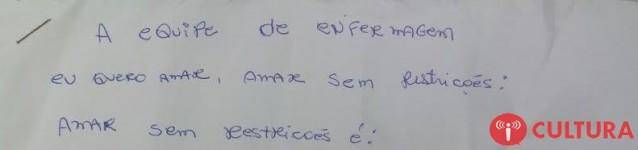 A equipe de enfermagem
eu quero amar, amar sem restricções:
Amar sem restriccões é:
CULTURA